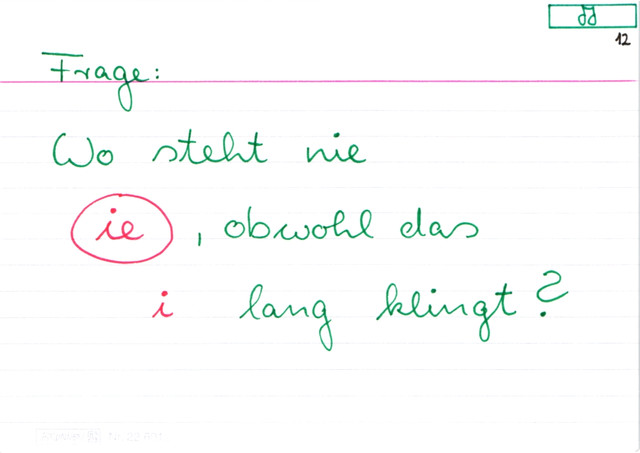 12
Frage:
Wo steht nie
ie, obwohl das
i lang klingt?